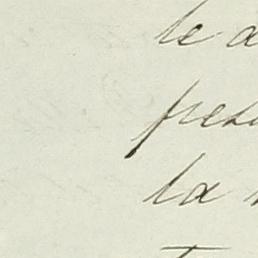 le a
pres
la